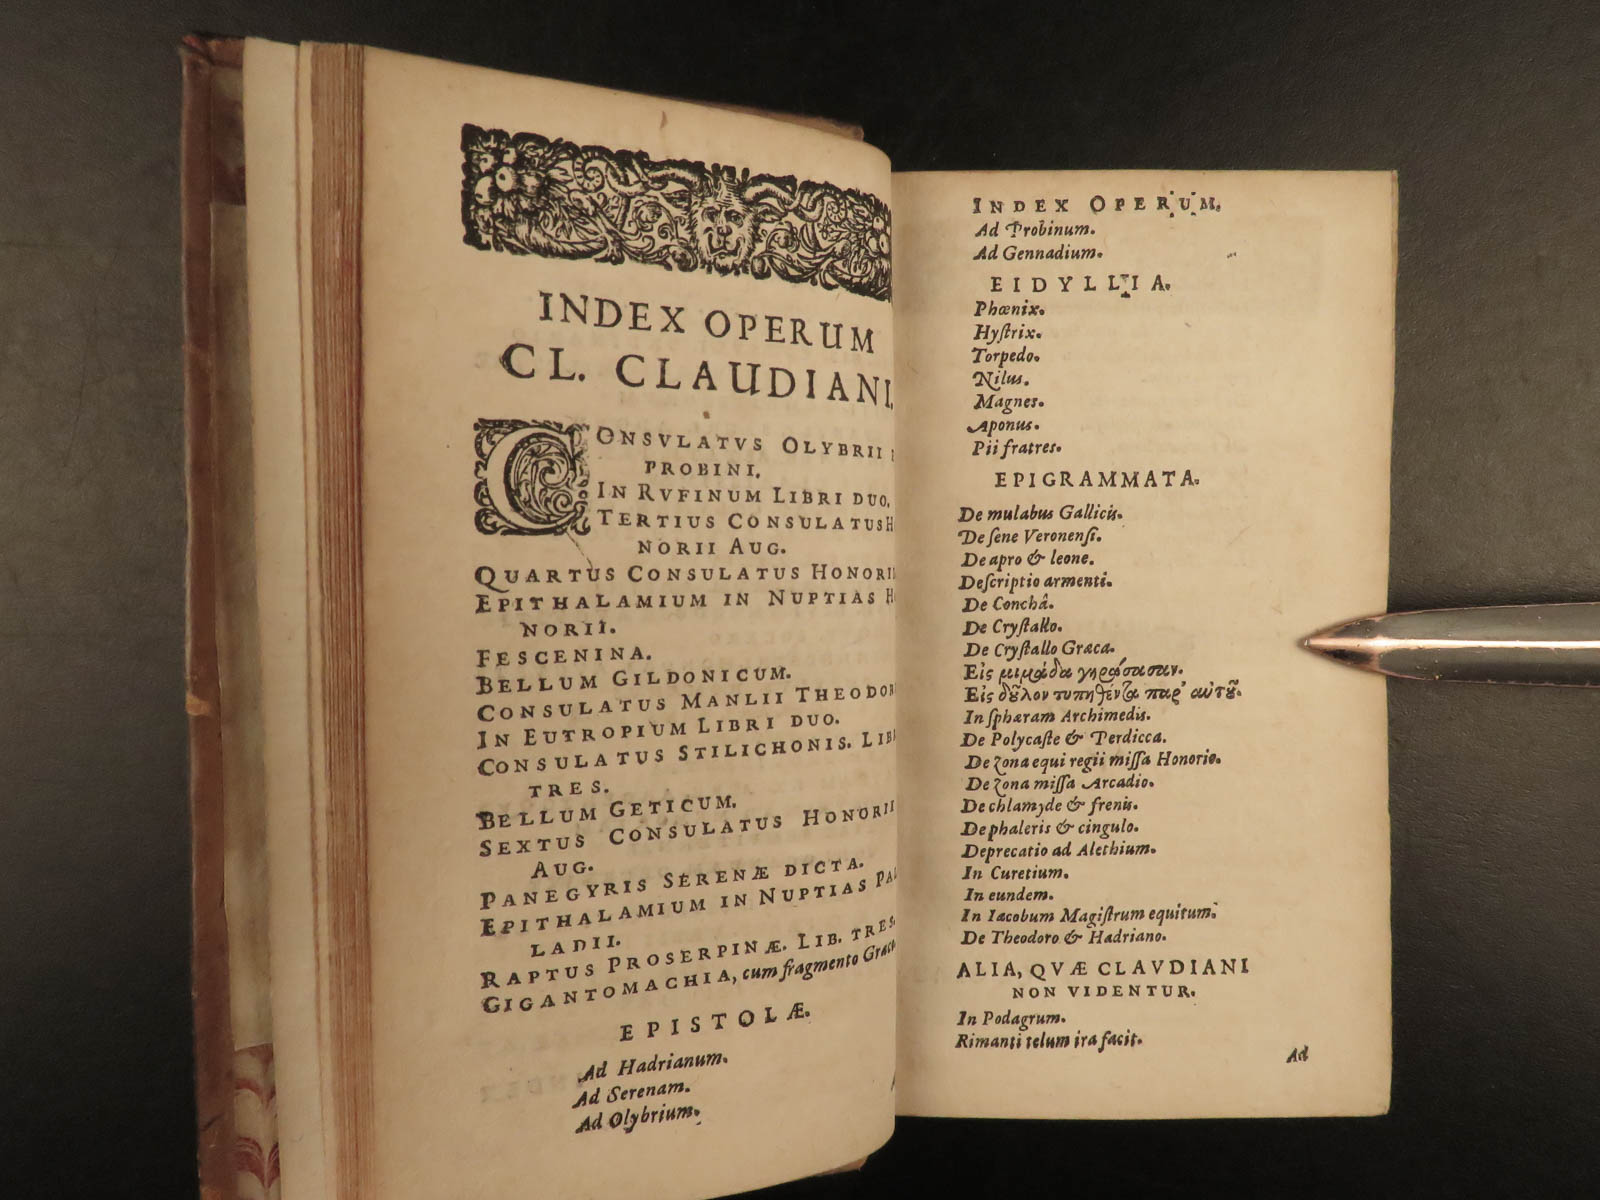 INDEX OPERUM
CL. CLAUDIANI.
CONSVLATVS OLYBRII
PROBINI.
IN RVFINUM LIBRI DUO.
TERTIUS CONSULATUS H
NORII AUG.
QUARTUS CONSULATUS HONORII
EPITHALAMIUM IN NUPTIAS H
NORII.
FESCENINA.
BELLUM GILDONICUM.
CONSULATUS MANLII THEODOR
IN EUTROPIUM LIBRI DUO.
CONSULATUS STILICHONIS. LIB
TRES.
BELLUM GETICUM.
SEXTUS CONSULATUS HONORII
AUG.
PANEGYRIS SERENÆ DICTA.
EPITHALAMIUM IN NUPTIAS PAL
LADII.
RAPTUS PROSERPINÆ. LIB. TRES.
GIGANTOMACHIA, cum fragmento Græco
EPISTOLÆ.
Ad Hadrianum.
Ad Serenam.
Ad Olybrium.
INDEX OPERUM.
Ad Probinum.
Ad Gennadium.
EIDYLLIA.
Phœnix.
Hyſtrix.
Torpedo.
Nilus.
Magnes.
Aponus.
Pii fratres.
EPIGRAMMATA.
De mulabus Gallicis.
De ſene Veronenſi.
De apro & leone.
Deſcriptio armenti.
De Conchâ.
De Cryſtallo.
De Cryſtallo Græca.
Εἰς μιμάδα γηράσασαν.
Εἰς δοῦλον τυπηθέντα παρ' αὐτοῦ.
In ſphæram Archimedis.
De Polycaſte & Perdicca.
De zona equi regii miſſa Honorio.
De zona miſſa Arcadio.
De chlamyde & frenis.
De phaleris & cingulo.
Deprecatio ad Alethium.
In Curetium.
In eundem.
In Iacobum Magiſtrum equitum.
De Theodoro & Hadriano.
ALIA, QVÆ CLAVDIANI
NON VIDENTUR.
In Podagrum.
Rimanti telum ira facit.
Ad